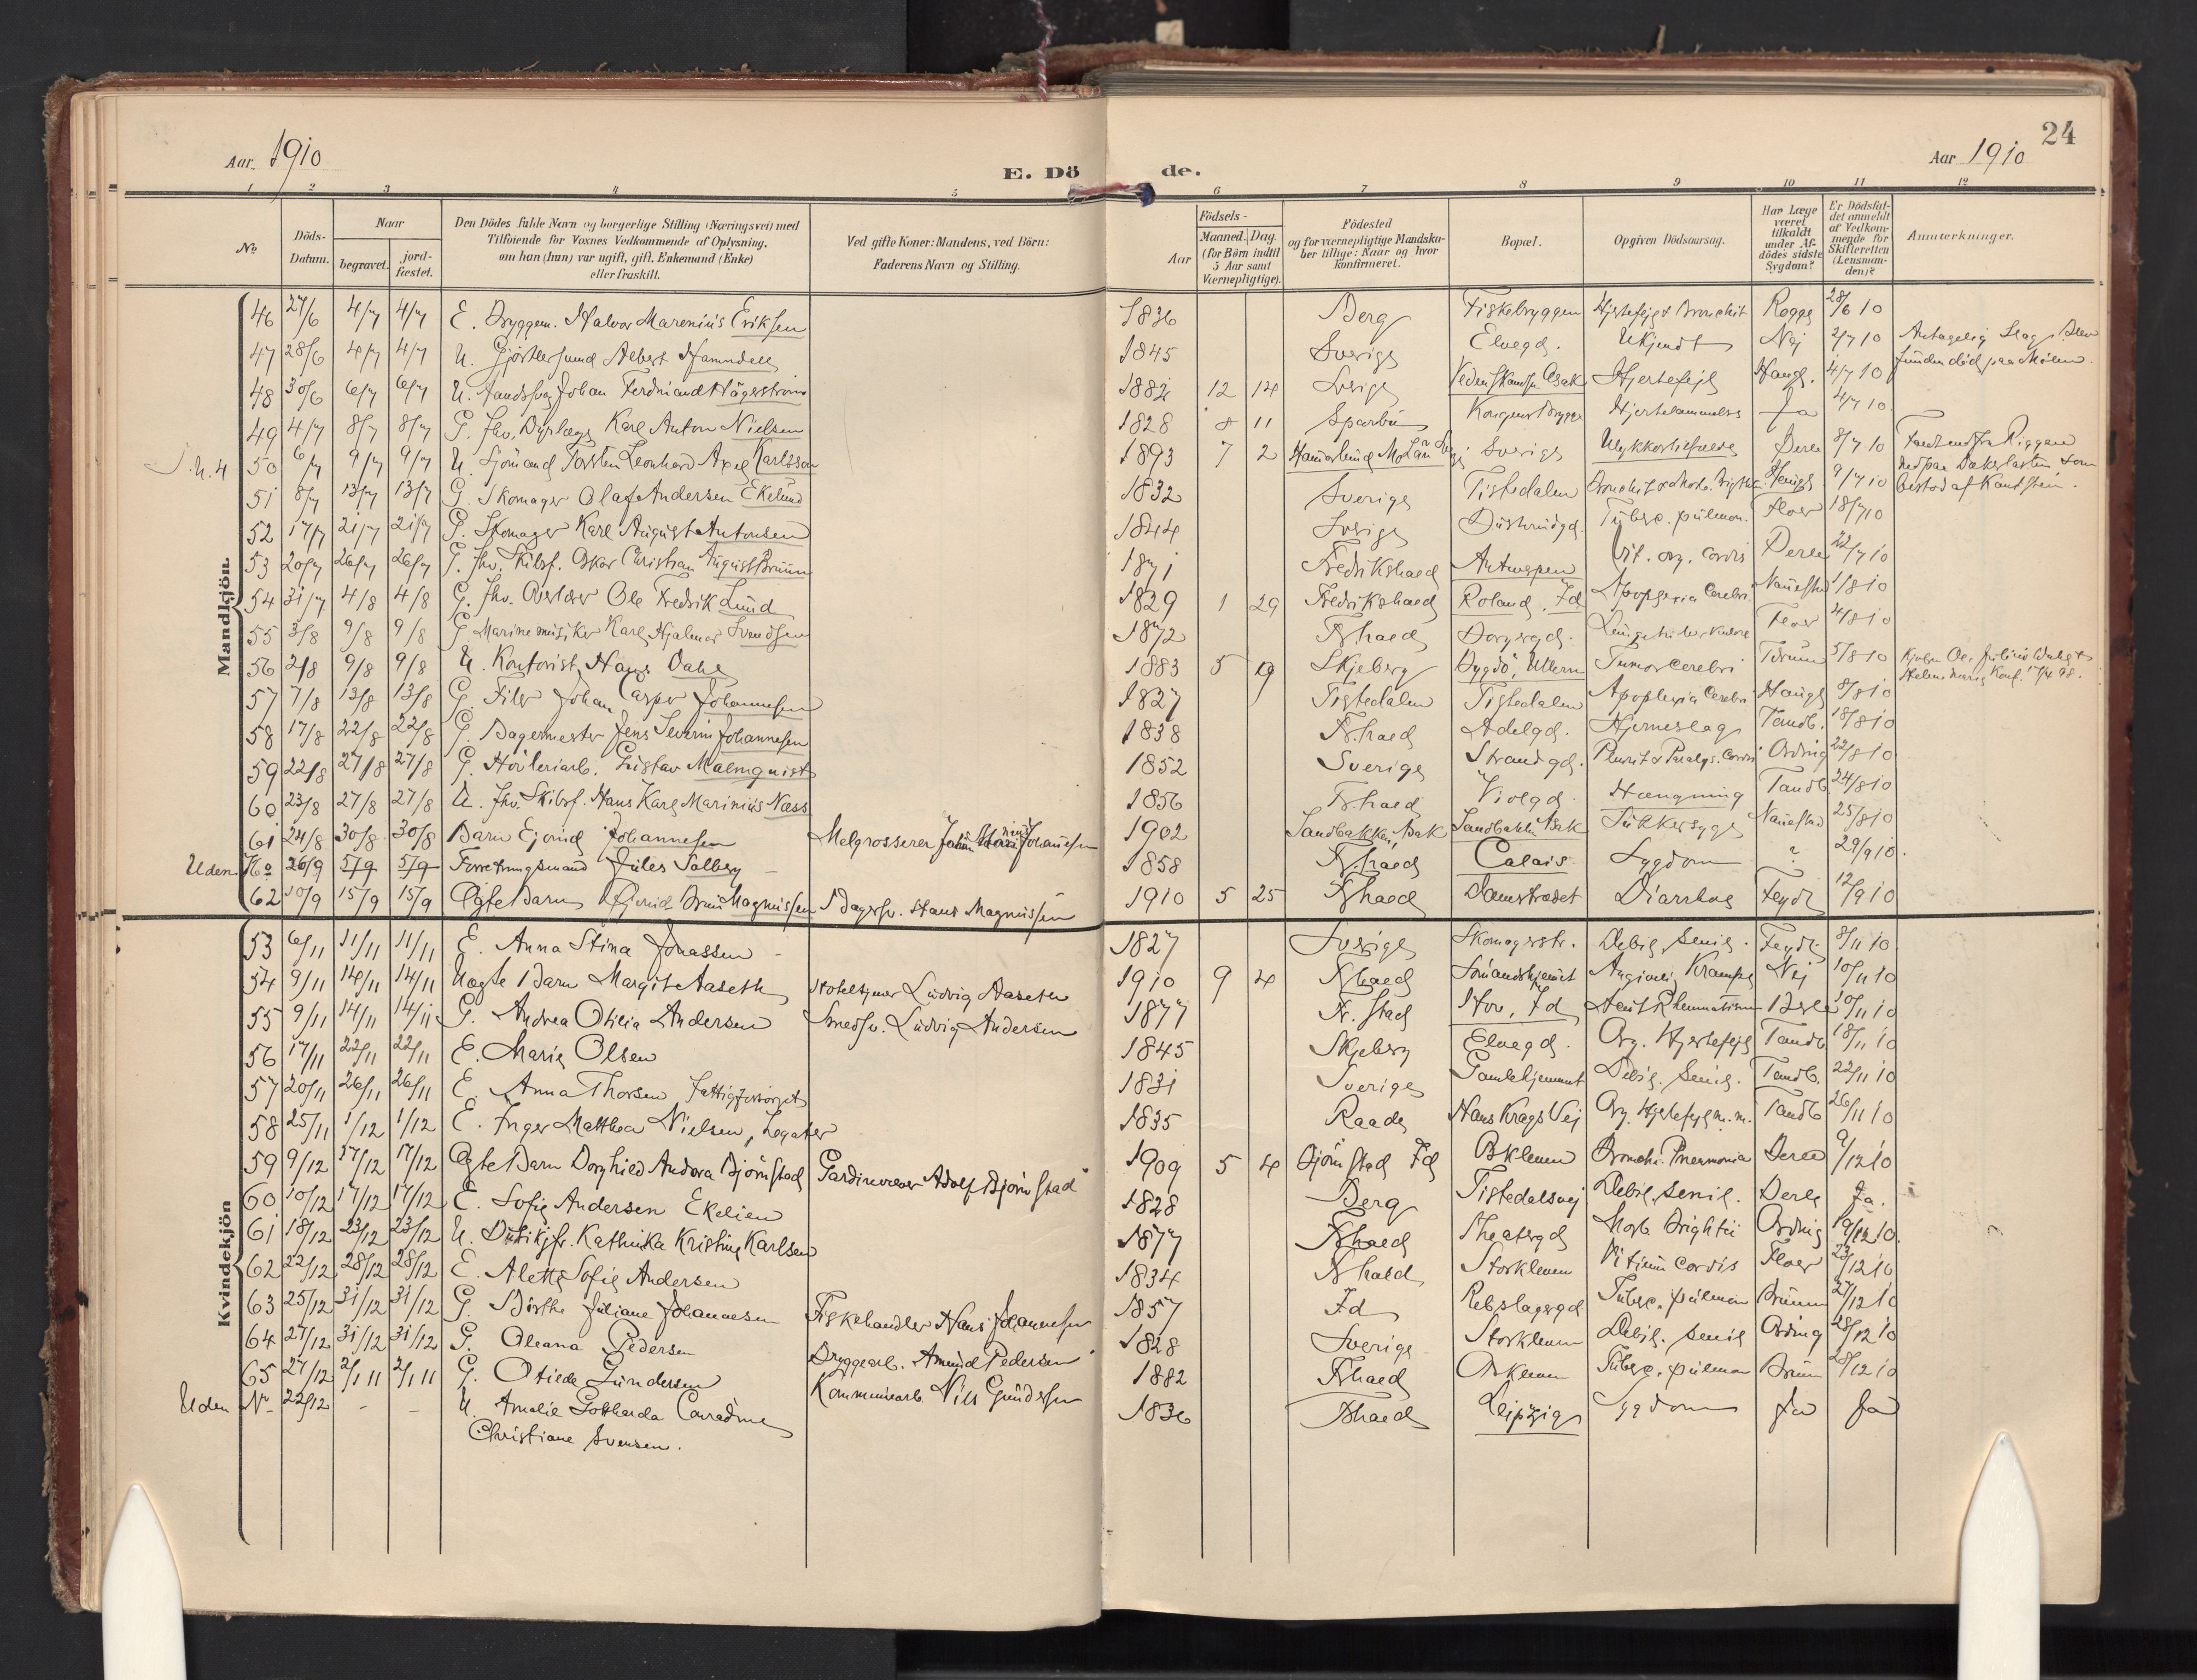 24
Aar 1910
E. Dö de.
Aar 1910
1 2 3 4 5 6 7 8 9 10 11 12
No
Döds-Datum.
Naar
begravet.
jord-fæstet.
Den Dödes fulde Navn og borgerlige Stilling (Næringsvei) med
Tilföiende for Voxnes Vedkommende af Oplysning,
om han (hun) var ugift, gift, Enkemand (Enke)
eller fraskilt.
Ved gifte Koner: Mandens, ved Börn:
Faderens Navn og Stilling.
Födsels-
Aar
Maaned. Dag.
(for Börn indtil
5 Aar samt
Værnepligtige).
Födested
og for værnepligtige Mandska-
ber tillige: Naar og hvor
konfirmeret.
Bopæl.
Opgiven Dödsaarsag.
Har Læge
været
tilkaldt
under Af-
dödes sidste
Sygdom?
Er Dödsfal-
det anmeldt
af Vedkom-
mende for
Skifteretten
(Lensman-
den)?
Anmærkninger.
Mandkjön.
46 27/6 4/7 4/7 E. Bryggem. Halvor Marenius Eriksen 1836 Berg Fiskebryggen Hjertefejl & Bronchit Rogge 28/6 10
47 28/6 4/7 4/7 U. Gjörtlersvend Albert Hammdell 1845 Sverige Elvegd. Ukjendt Nej 2/7 10 Antagelig Slag. Blev
funden död paa Molen.
48 30/6 6/7 6/7 U. Johan Ferdinand Hägerström 1882 12 14 Sverige Asak Hjertefejl Haugl. 4/7 10
49 4/7 8/7 8/7 G. Fhv. Dyrlæge Karl Anton Nielsen 1828 8 11 Sparbu Kongens Brygge Hjertelammelse Ja 4/7 10
50 6/7 9/7 9/7 U. Sjömand Torsten Leonhard Axel Karlsson 1893 7 2 Sverige Ulykkestilfælde Derle 8/7 10 Faldt ned fra Riggen
ned paa Dækslasten som
bestod af Kantsten.
51 8/7 13/7 13/7 G. Skomager Olaf Andersen Ekelund 1832 Sverige Tistedalen Bronchit & Morb. Brightii Haugl 9/7 10
52 17/7 21/7 21/7 G. Skomager Karl August Antonsen 1844 Sverige Tuberc. pulmon. Floer 18/7 10
53 20/7 26/7 26/7 G. Fhv. Skibsf. Oskar Christian August Bruun 1871 Fredrikshald Antwerpen Vit. org. cordis Derle 22/7 10
54 31/7 4/8 4/8 G. Fhv. Overlærer Ole Fredrik Lund 1829 1 29 Fredrikshald Roland, Id Apoplexia Cerebri 1/8 10
55 3/8 9/8 9/8 G Marinemusiker Karl Hjalmar Svendsen 1872 Frhald Borgergd. Lungetuberkulose Floer 4/8 10
56 2/8 9/8 9/8 U. Kontorist Hans Dahl 1883 5 19 Skjeberg Bygdö, Ullern Tumor Cerebri 5/8 10
57 7/8 13/8 13/8 G. Filer Johan Casper Johannesen 1827 Tistedalen Tistedalen Apoplexia Cerebri Haugl 8/8 10
58 17/8 22/8 22/8 G. Bagermester Jens Severin Johannesen 1838 Fr.hald Adelgd. Hjerneslag Tandb. 18/8 10
59 22/8 27/8 27/8 G. Hövleriarb. Gustav Malmquist 1852 Sverige Strandgd. Pleurit & Paralys. Cordis Ording 22/8 10
60 23/8 27/8 27/8 U. Fhv. Skibsf. Hans Karl Marinius Næss 1856 Frhald Violgd. Hængning Tandb 24/8 10
61 24/8 30/8 30/8 Barn Ejvind Johannesen Melgrosserer Johannesen 1902 Sandbakken, Asak Sandbakken Asak Sukkersyge 25/8 10
Uden No 26/9 5/9 5/9 Forretningsmand Jules Salberg 1858 Frhald Calais Sygdom ? 29/9 10.
62 10/9 15/9 15/9 Ægte Barn Ejvind Magnussen Bagersv. Hans Magnussen 1910 5 25 Frhald Damstrædet Diarrhoe Feydt 12/9 10
Kvindekjön
53 6/11 11/11 11/11 E. Anna Stina Jonassen 1827 Sverige Skomagerstr. Debil. senil. Feydt 8/11 10
54 9/11 14/11 14/11 Uægte Barn Margit Aaseth Ludvig Aaseth 1910 9 4 Frhald Krampe Nej 10/11 10
55 9/11 14/11 14/11 G. Andrea Otilia Andersen Smedsv. Ludvig Andersen 1877 Fr.stad Hov, Id Acut Rheumatisme Derle 10/11 10
56 17/11 22/11 22/11 E. Marie Olsen 1845 Skjeberg Elvegd. Org. Hjertefejl Tandb 18/11 10
57 20/11 26/11 26/11 E. Anna Thorsen Fattigforsörget 1831 Sverige Gamlehjemmet Debil. Senil. Tandb. 22/11 10
58 25/11 1/12 1/12 E. Inger Matthea Nielsen, 1835 Raade Hans Krags Vej Org. Hjertefejl m.m. Tandb 26/11 10
59 9/12 17/12 17/12 Ægte Barn Borghild Andora Björnstad Adolf Björnstad 1909 5 4 Björnstad Id Oskleven Bronchi. Pneumonia Derle 9/12 10
60 10/12 17/12 17/12 E. Sofie Andersen Ekelien 1828 Berg Tistedalsvej Debil. senil. Derle Ja.
61 18/12 23/12 23/12 U. Butikjfr. Kathinka Kristine Karlsen 1877 Frhald Theatergd Morb Brightii Ording 19/12 10.
62 22/12 28/12 28/12 E. Alette Sofie Andersen 1834 Frhald Storkleven Vitium cordis Floer 23/12 10
63 25/12 31/12 31/12 G. Börthe Juliane Johannesen Fiskehandler Hans Johannesen 1857 Id Rebslagergd Tuberc. pulmon Bruun 27/12 10
64 27/12 31/12 31/12 G. Oleana Pedersen Bryggearb. Amund Pedersen 1828 Sverige Storkleven Debil. senil Ording 28/12 10
65 27/12 2/1 11 2/1 11 G. Otilde Gundersen Kommunearb. Nils Gundersen 1882 Frhald Oskleven Tuberc. pulmon Bruun 28/12 10
Uden Nr 22/12 - - U. Amalie Gottharda Conradine 1836 Frhald Leipzig Sygdom Ja Ja
Christiane Svensen.